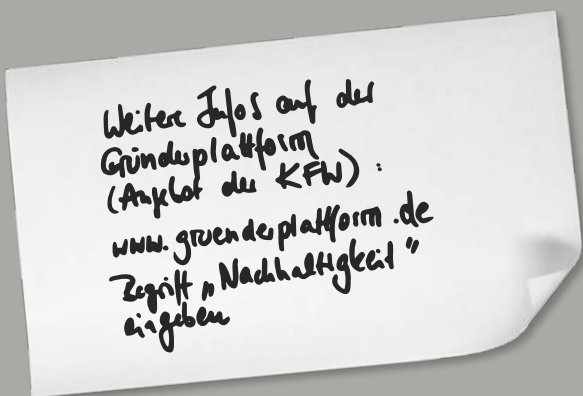 Weitere Infos auf der
Gründerplattform
(Angebot der KFW) :
www.gruenderplattform.de
Begriff „Nachhaltigkeit"
eingeben